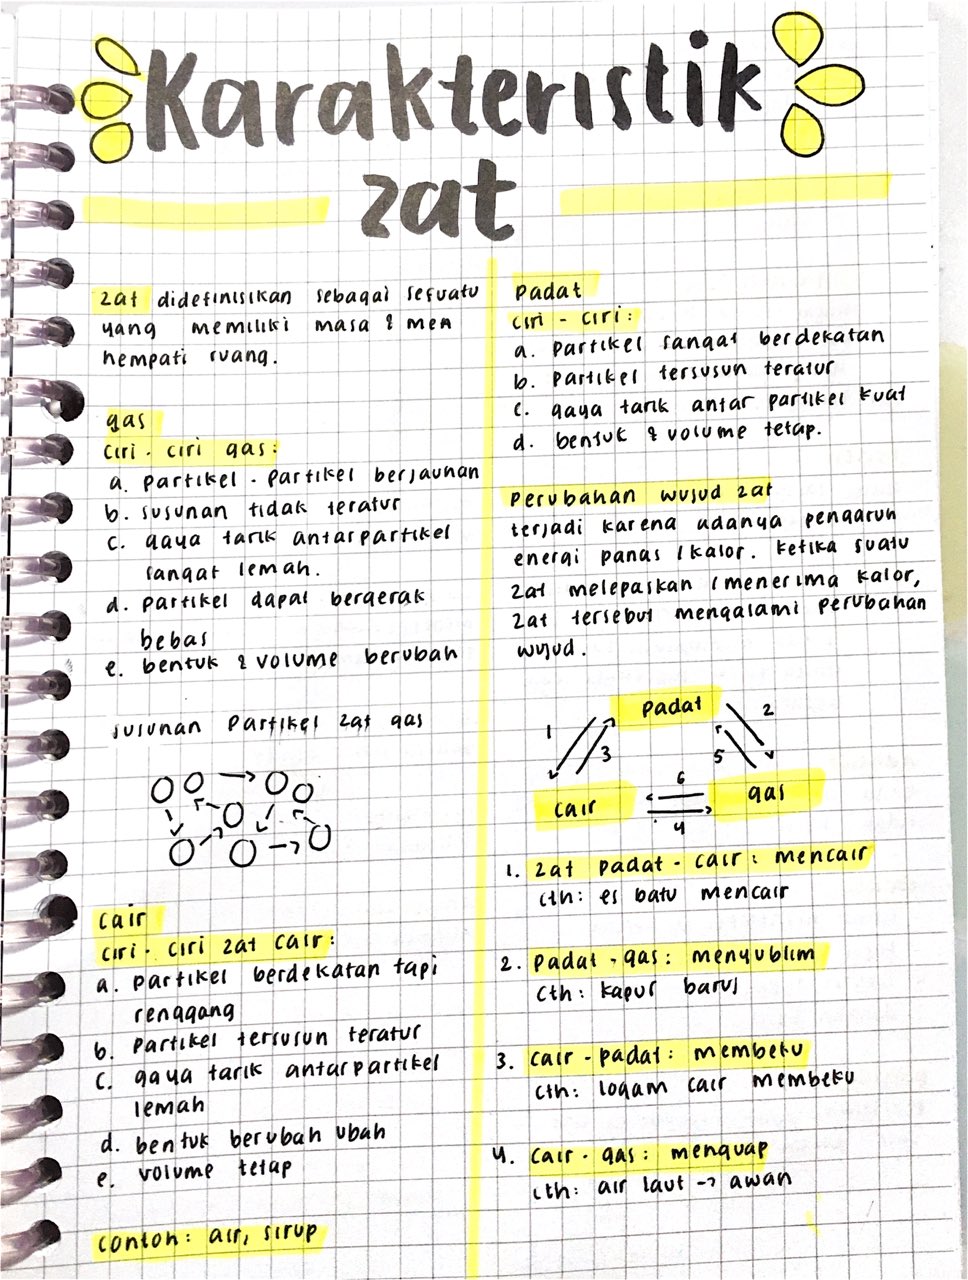 Karakteristik
zat
zat didefinisikan sebagai sesuatu
yang memiliki masa & men
nempati ruang.
gas
ciri - ciri gas:
a. partikel - partikel berjauhan
b. susunan tidak teratur
c. gaya tarik antarpartikel
sangat lemah.
d. partikel dapat bergerak
bebas
e. bentuk & volume berubah
susunan partikel zat gas
cair
ciri - ciri zat cair:
a. partikel berdekatan tapi
renggang
b. partikel tersusun teratur
c. gaya tarik antarpartikel
lemah
d. bentuk berubah ubah
e. volume tetap
contoh: air, sirup
Padat
ciri - ciri:
a. partikel sangat berdekatan
b. partikel tersusun teratur
c. gaya tarik antar partikel kuat
d. bentuk & volume tetap.
perubahan wujud zat
terjadi karena adanya pengaruh
energi panas / kalor. ketika suatu
zat melepaskan / menerima kalor,
zat tersebut mengalami perubahan
wujud.
padat
1
2
3
5
cair
6
4
gas
1. zat padat - cair: mencair
cth: es batu mencair
2. padat - gas: menyublim
cth: kapur barus
3. cair - padat: membeku
cth: logam cair membeku
4. cair - gas: menguap
cth: air laut -> awan